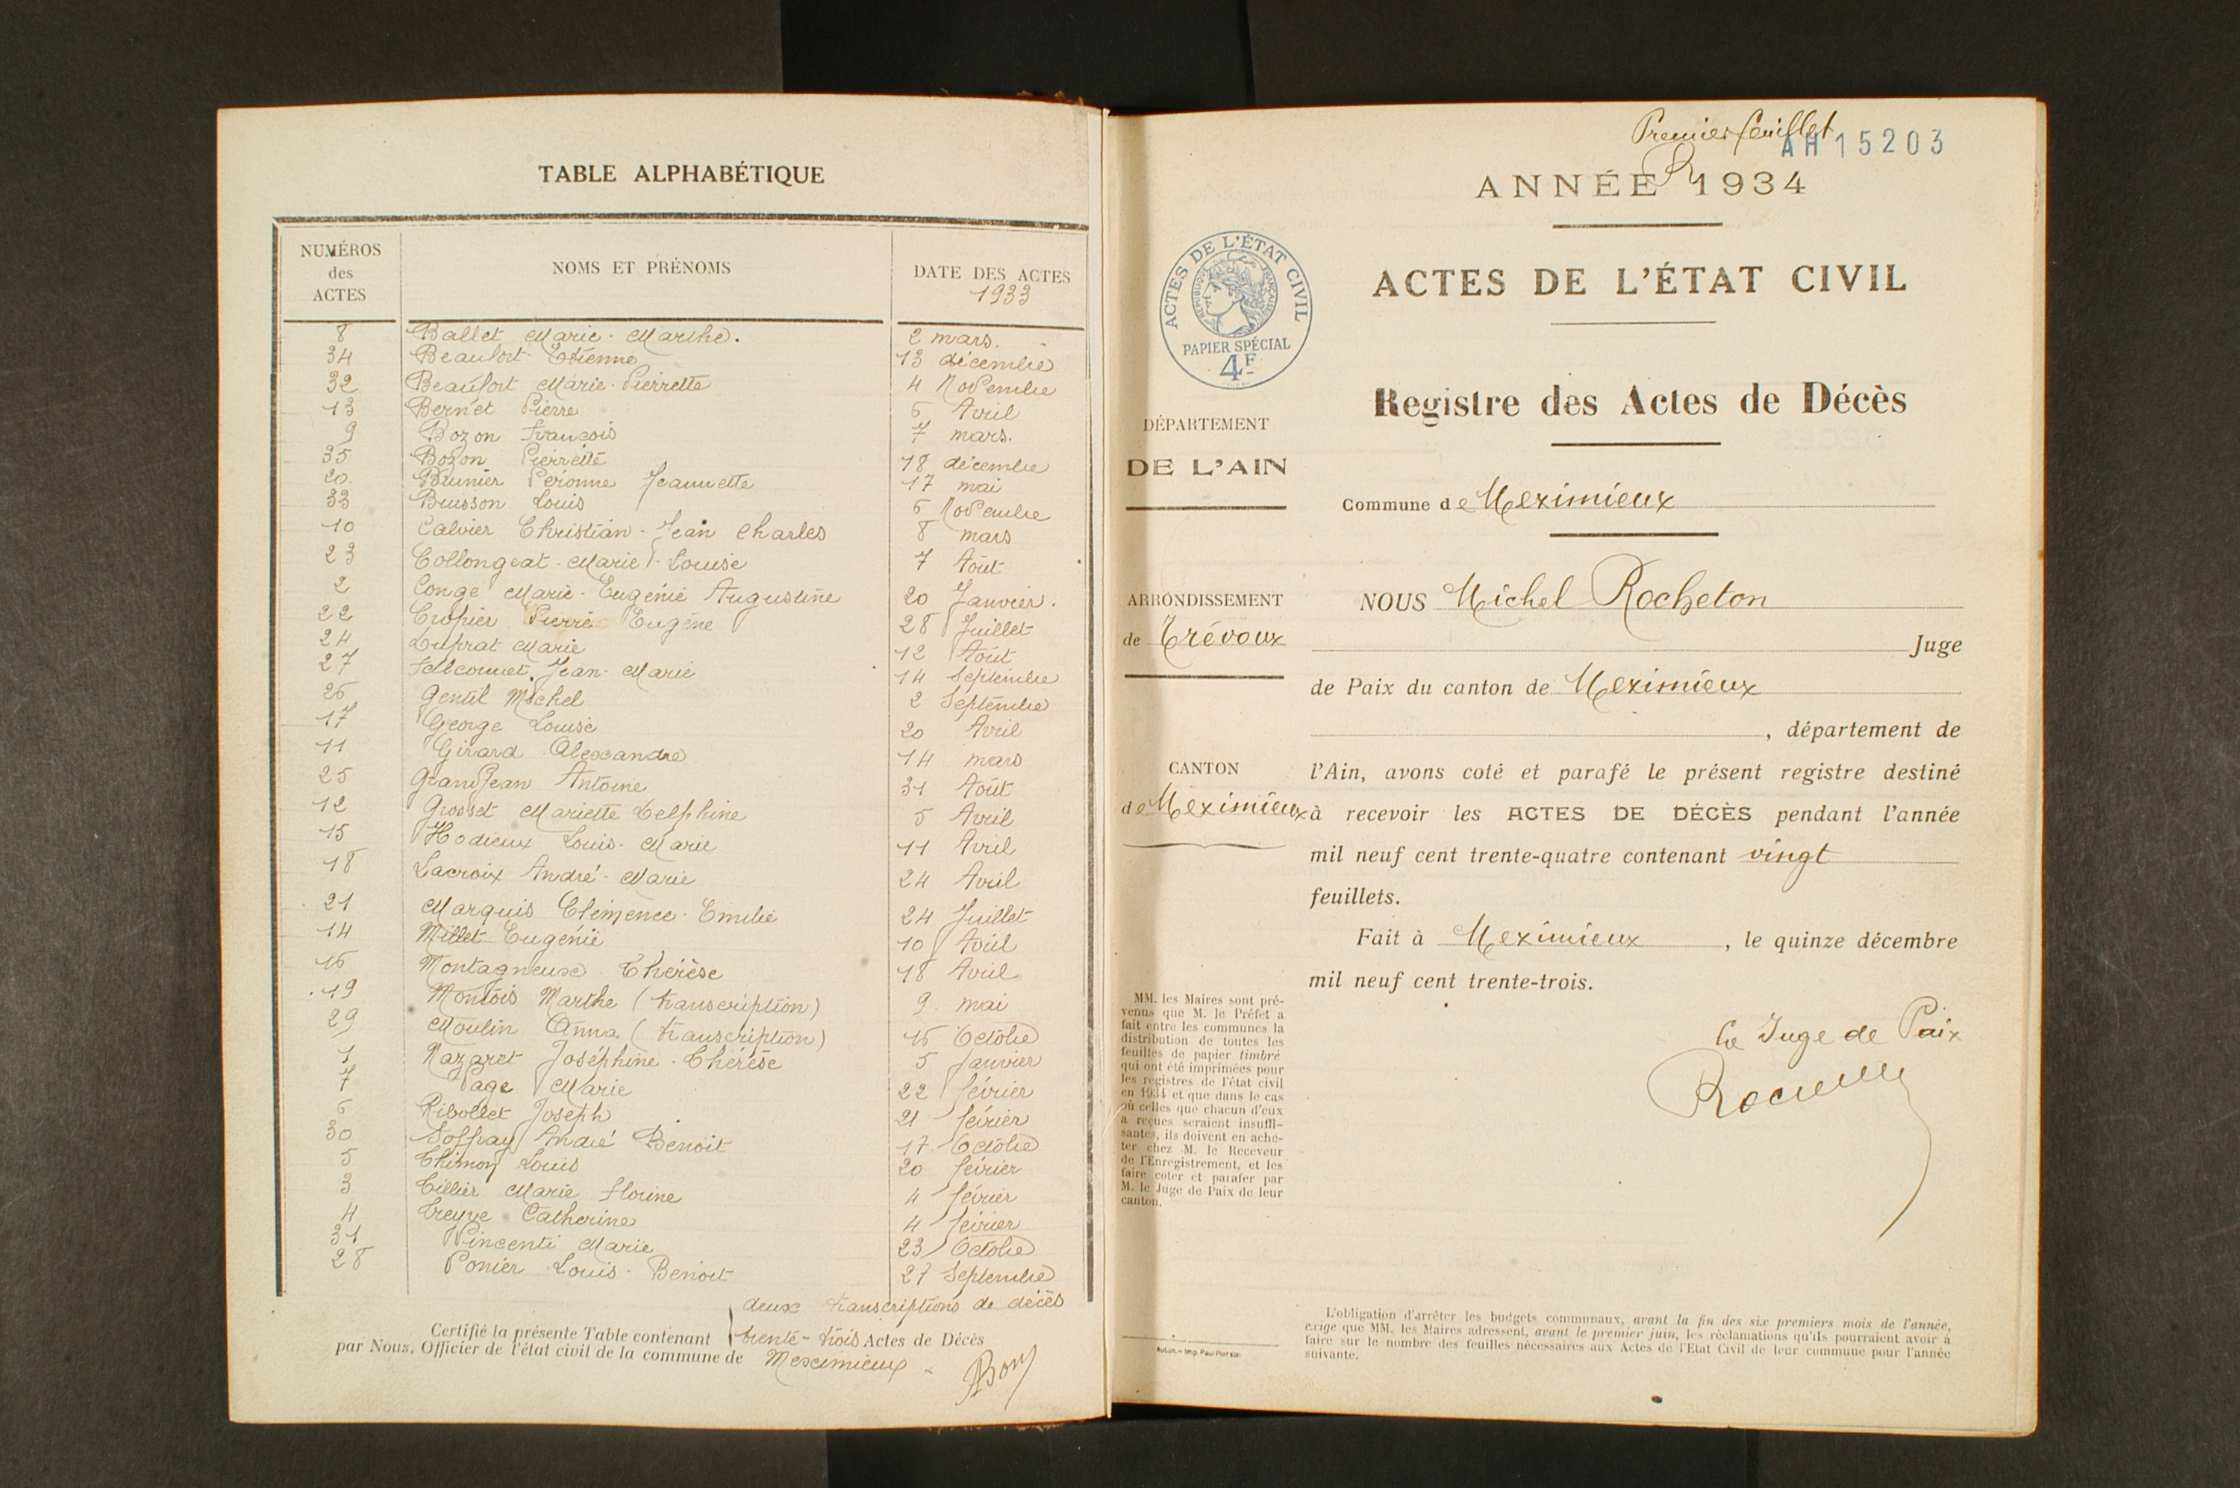 TABLE ALPHABÉTIQUE
NUMÉROS des ACTES | NOMS ET PRÉNOMS | DATE DES ACTES 1933
8 Ballet Marie-Marthe. 2 mars.
34 Beaufort Etienne 13 décembre
32 Beaufort Marie-Pierrette 4 Novembre
13 Bernet Pierre 6 Avril
9 Bozon François 7 mars.
35 Bozon Pierrette 18 décembre
20. Brunier Péronne Jeannette 17 mai
33 Buisson Louis 6 Novembre
10 Calvier Christian-Jean Charles 8 mars
23 Collongeat-Marie-Louise 7 Août
2 Conge Marie-Eugénie Augustine 20 Janvier.
22 Cropier Pierre Eugène 28 Juillet
24 Duprat Marie 12 Août
27 Falconnet, Jean-Marie 14 Septembre
26 Gentil Michel 2 Septembre
17 George Louise 20 Avril
11 Girard Alexandre 14 mars
25 Grandjean Antoine 31 Août
12 Grosset Mariette Delphine 5 Avril
15 Hodieux Louis-Marie 11 Avril
18 Lacroix André-Marie 24 Avril
21 Marquis Clémence-Emilie 24 Juillet
14 Millet Eugénie 10 Avril
16 Montagneux Thérèse 18 Avril
19 Montois Marthe (transcription) 9 mai
29 Moulin Anna (transcription) 16 Octobre
1 Nazaret Joséphine-Thérèse 5 Janvier
7 Page Marie 22 février
6 Ribollet Joseph 21 février
30 Soffray André Benoit 17 Octobre
5 Thimon Louis 20 février
3 Tillier Marie Florine 4 février
4 Treyve Catherine 4 février
31 Vincenti Marie 23 Octobre
28 Ponier Louis-Benoit 27 Septembre
deux transcriptions de décès
Certifié la présente Table contenant trente-trois Actes de Décès
par Nous, Officier de l'état civil de la commune de Meximieux
Premier feuillet
AH 15203
ANNÉE 1934
ACTES DE L'ÉTAT CIVIL
Registre des Actes de Décès
Commune de Meximieux
NOUS Michel Rocheton
Juge
de Paix du canton de Meximieux
, département de
l'Ain, avons coté et parafé le présent registre destiné
à recevoir les ACTES DE DÉCÈS pendant l'année
mil neuf cent trente-quatre contenant vingt
feuillets.
Fait à Meximieux, le quinze décembre
mil neuf cent trente-trois.
Le Juge de Paix
ACTES DE L'ÉTAT CIVIL
RÉPUBLIQUE FRANÇAISE
PAPIER SPÉCIAL
4F
DÉPARTEMENT
DE L'AIN
ARRONDISSEMENT
de Trévoux
CANTON
de Meximieux
MM. les Maires sont pré-
venus que M. le Préfet a
fait entre les communes la
distribution de toutes les
feuilles de papier timbré
qui ont été imprimées pour
les registres de l'état civil
en 1934 et que dans le cas
où celles que chacun d'eux
a reçues seraient insuffi-
santes, ils doivent en ache-
ter chez M. le Receveur
de l'Enregistrement, et les
faire coter et parafer par
M. le Juge de Paix de leur
canton.
L'obligation d'arrêter les budgets communaux, avant la fin des six premiers mois de l'année,
exige que MM. les Maires adressent, avant le premier juin, les réclamations qu'ils pourraient avoir à
faire sur le nombre des feuilles nécessaires aux Actes de l'Etat Civil de leur commune pour l'année
suivante.